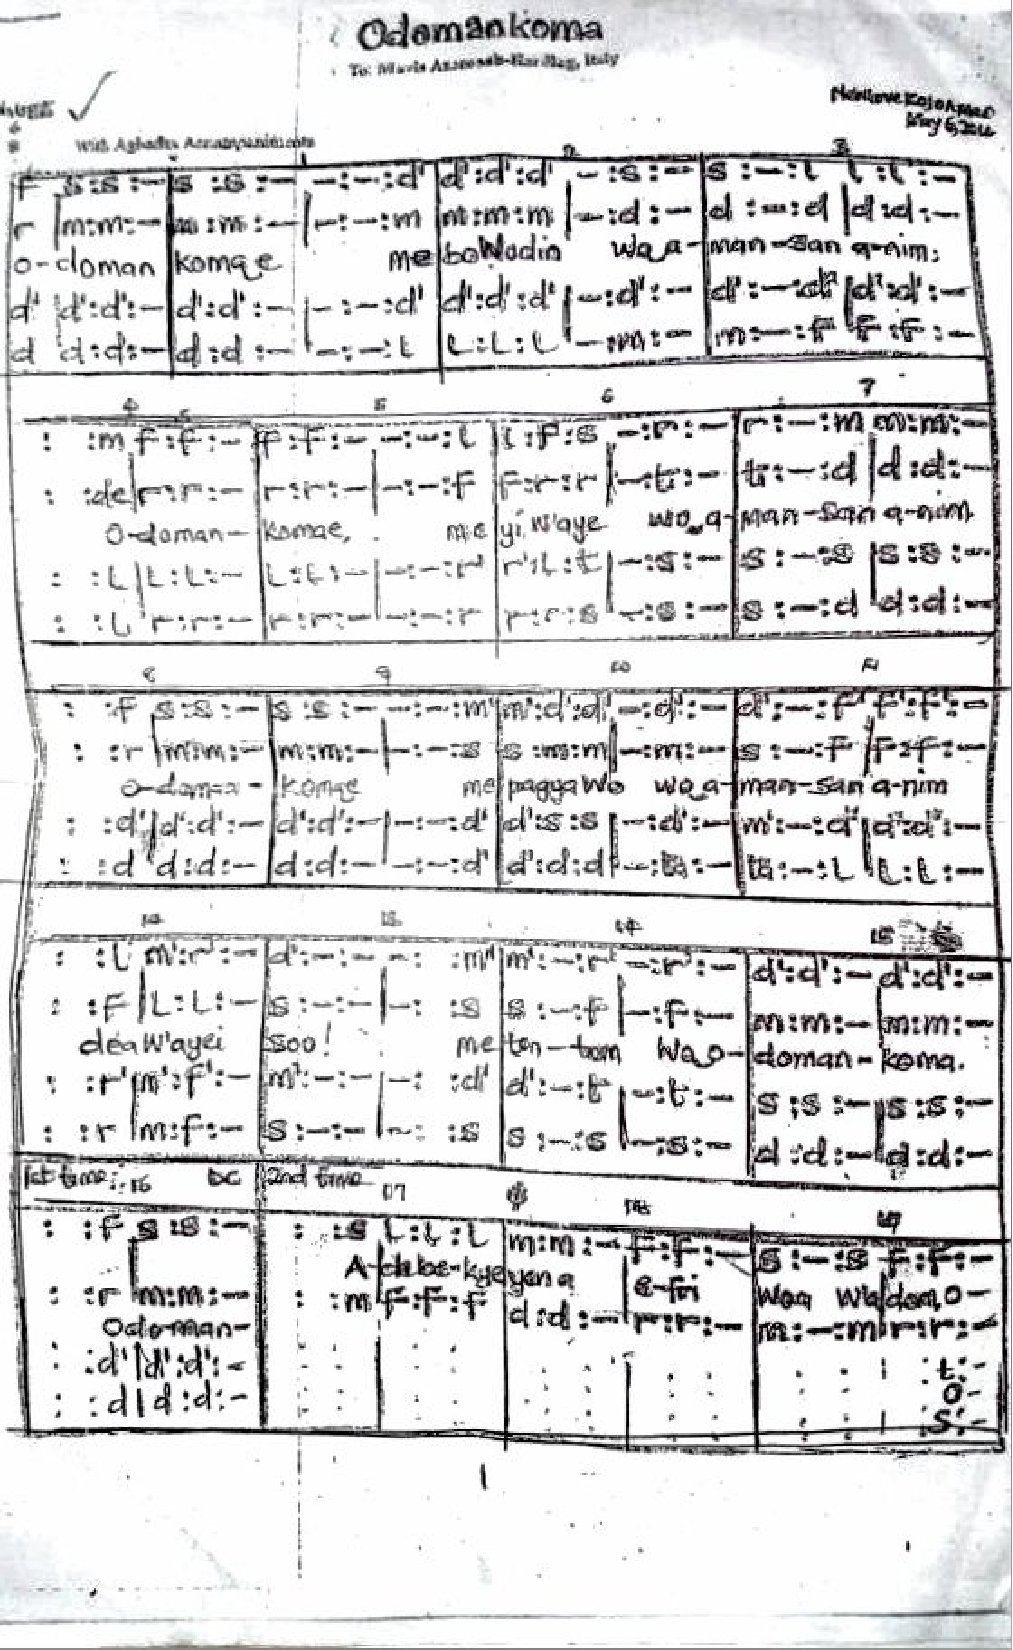 Odomankoma
To: Mavis Italy
May 6,
With Agbadza Accompaniments
2 3
f s:s:— s:s:— —:—:d' d':d':d' —:s:— s:—:l l:l:—
r m:m:— m:m:— —:—:m m:m:m —:d:— d:—:d d:d:—
O-doman komae me bo Wodin wo a-man-san a-nim:
d' d':d':— d':d':— —:—:d' d':d':d' —:d':— d':—:d' d':d':—
d d:d:— d:d:— —:—:l l:l:l —:m:— m:—:f f:f:—
4 5 6 7
: :m f:f:— f:f:— —:—:l l:f:s —:r:— r:—:m m:m:—
: :de r:r:— r:r:— —:—:f f:r:r —:t:— t:—:d d:d:—
O-doman- komae, me yi W'aye wo a-man-san a-nim
: :l l:l:— l:l:— —:—:r' r':l:t —:s:— s:—:s s:s:—
: :l r:r:— r:r:— —:—:r r:r:s —:s:— s:—:d d:d:—
8 9 10 11
: :f s:s:— s:s:— —:—:m' m':d':d' —:d':— d':—:f' f':f':—
: :r m:m:— m:m:— —:—:s s:m:m —:m:— s:—:f f:f:—
O-doma- komae me pagya Wo wo a-man-san a-nim
: :d' d':d':— d':d':— —:—:d' d':s:s —:d':— m':—:d' d':d':—
: :d d:d:— d:d:— —:—:d' d':d:d —:ta:— ta:—:l l:l:—
12 13 14 15
: :l m':r':— d':—:— —: :m' m':—:r' —:r':— d':d':— d':d':—
: :f l:l:— s:—:— —: :s s:—:f —:f:— m:m:— m:m:—
dea W'ayei soo! me ten-bom Wo o-doman-koma.
: :r' m':f':— m':—:— —: :d' d':—:t —:t:— s:s:— s:s:—
: :r m:f:— s:—:— —: :s s:—:s —:s:— d:d:— d:d:—
1st time: 16 DC 2nd time 17 18 19
: :f s:s:— : :s l:l:l m:m:— f:f:— s:—:s f:f:—
A-dabe-kye yen a e-fri Woa Wadom, O-
: :r m:m:— : :m f:f:f d:d:— r:r:— m:—:m r:r:—
Odoman-
: :d' d':d':— : : : : : : : : : : :t:—
O-
: :d d:d:— : : : : : : : : : : :s:—
1